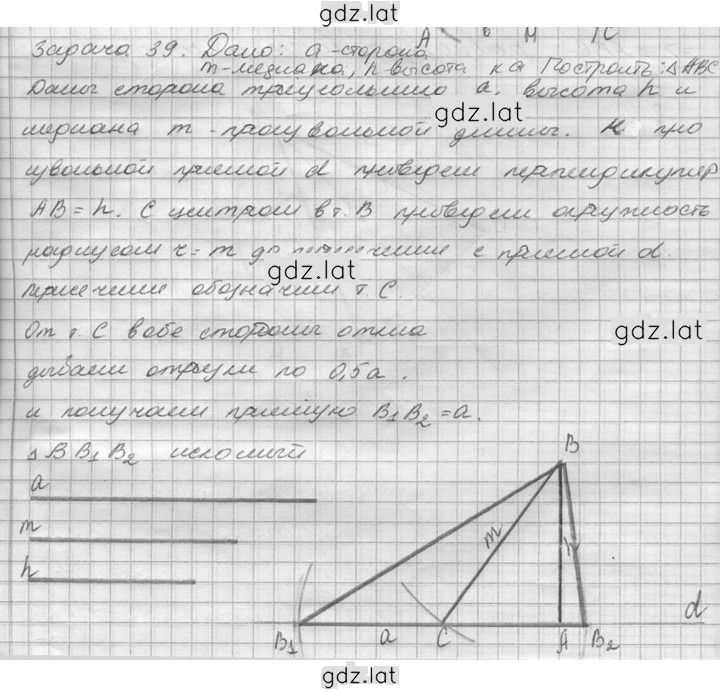 gdz.lat
A в M 1С
Задача 39. Дано: a-сторона
m-медиана, h высота к a Построить: △ABC
Даны сторона треугольника a, высота h и
медиана m - произвольной длины. К про
извольной прямой d проведем перпендикуляр
AB = h. С центром в т. B проведем окружность
gdz.lat
радиусом r = m до с прямой d.
gdz.lat
пересечении обозначим т. C.
От т. C в обе стороны откла
gdz.lat
дываем отрезки по 0,5a.
и получаем прямую B₁B₂ = a.
△ B B₁ B₂ искомый
a
m
h
B
m
h
d
B₁ a C A B₂
gdz.lat